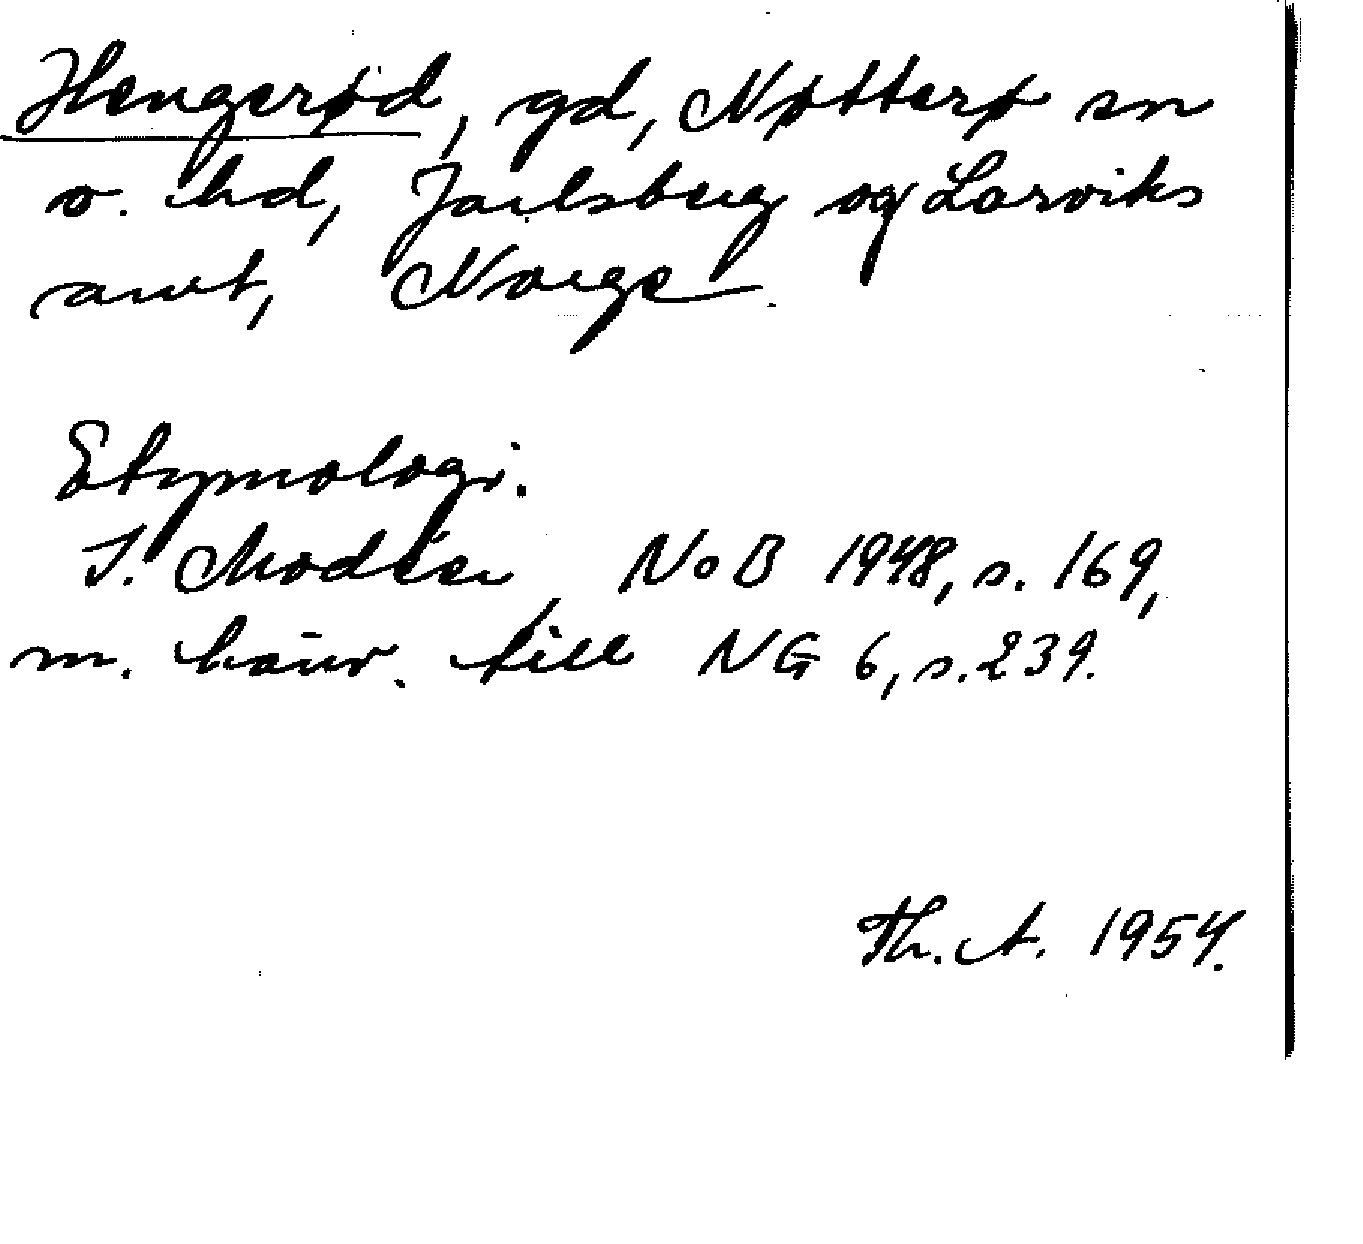 Hengerød, gd, Nøtterø sn
o. hd, Jarlsberg og Larviks
amt, Norge.
Etymologi.
I. Modéer, NoB 1948, s. 169,
m. hänv. till NG 6, s. 239.
Th. A. 1954.